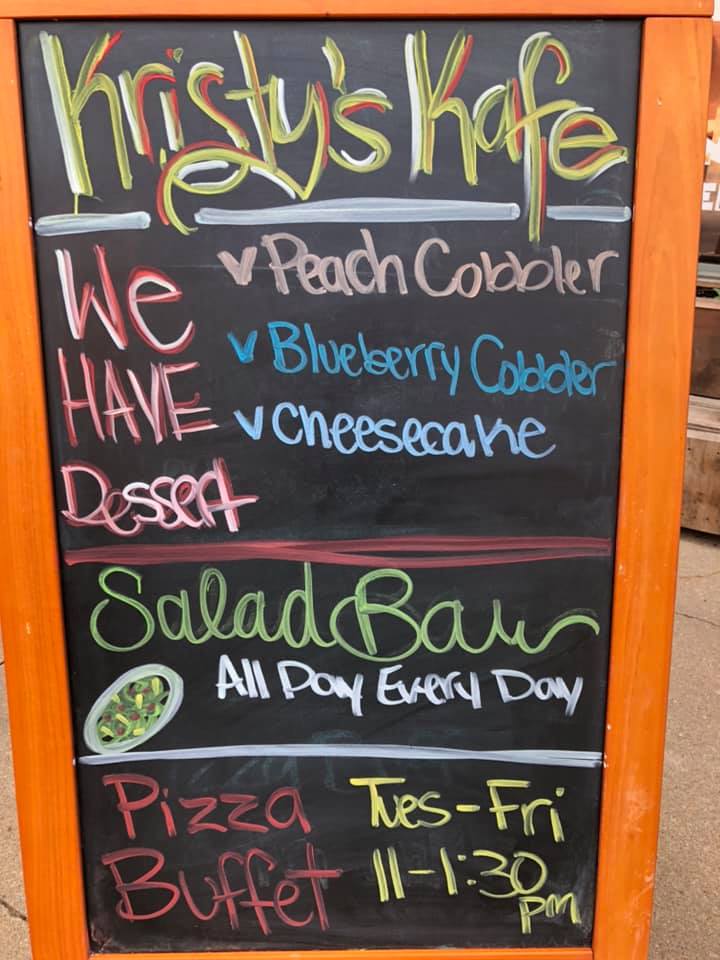 Kristy's Kafe
We
HAVE
Dessert
✓ Peach Cobbler
✓ Blueberry Cobbler
✓ Cheesecake
Salad Bar
All Day Every Day
Pizza
Buffet
Tues-Fri
11-1:30
pm